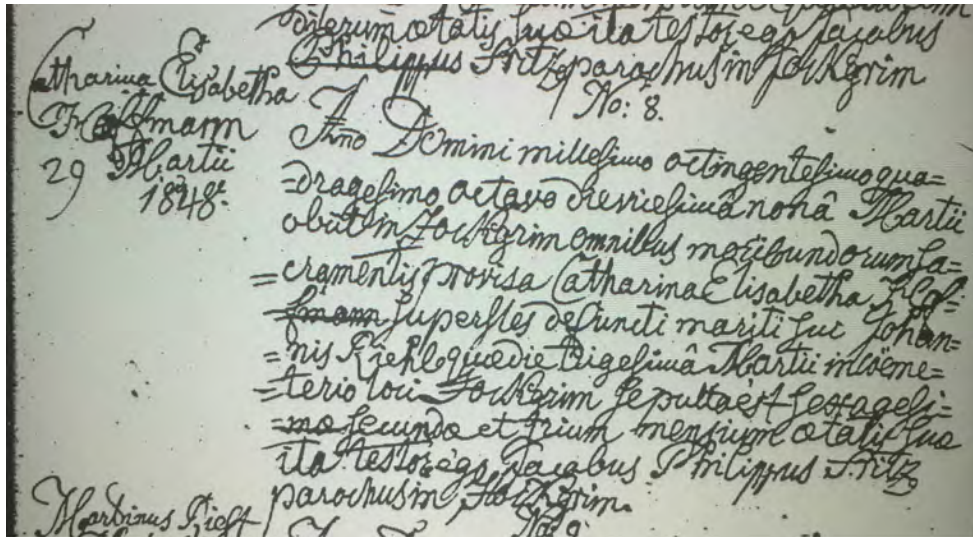 dierum ætatis suæ ita testor ego Jacobus
Philippus Fritz parochus in Jockgrim
Catharina Elisabetha
mann
29 Martii
1848.
No: 8.
Anno Domini millesimo octingentesimo qua=
=dragesimo octavo die vicesimâ nonâ Martii
obiit in Jockgrim omnibus moribundorum sa=
=cramentis provisa Catharina Elisabetha
=mann superstes defuncti mariti sui Johan=
=nis Riehl quæ die trigesimâ Martii in cöeme=
=terio loci Jockgrim sepulta est sexagesi=
=mo secundo et trium mensium ætatis suæ
ita testor ego Jacobus Philippus Fritz
parochus in Jockgrim.
Martinus
No: 9.